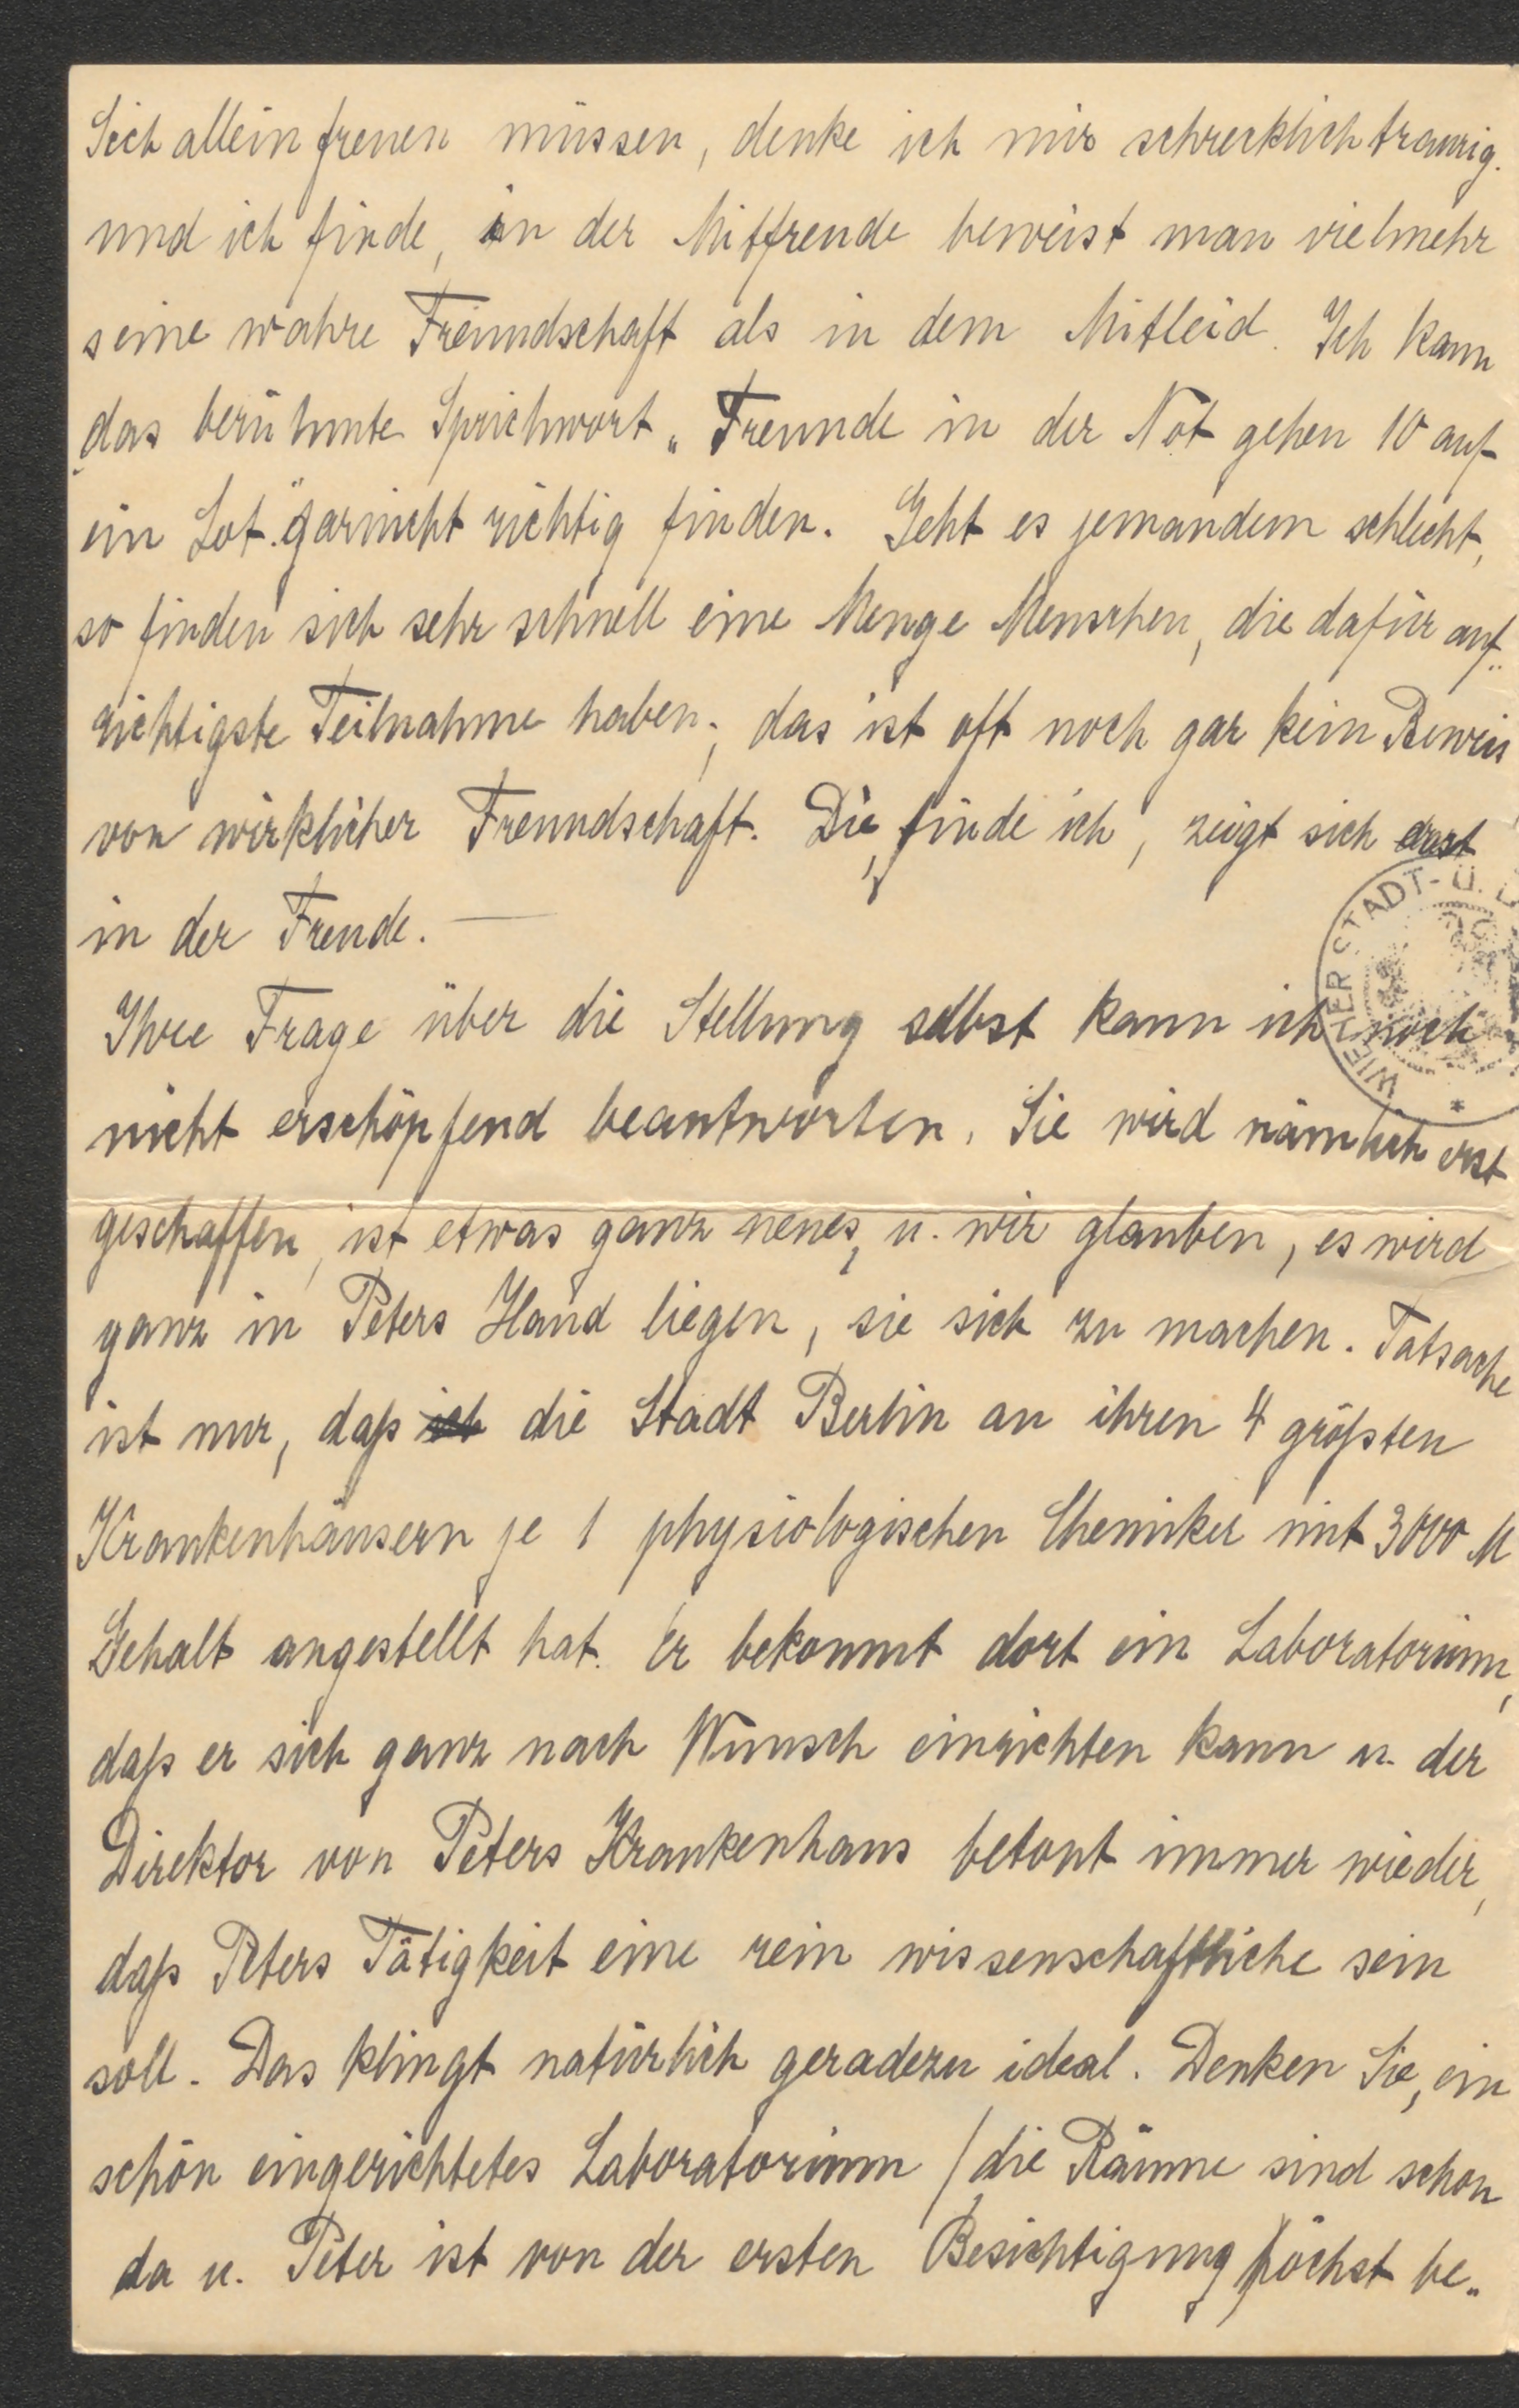 Sich allein freuen müssen, denke ich mir schrecklich traurig.
und ich finde, in der Mitfreude beweist man vielmehr
seine wahre Freundschaft als in dem Mitleid. Ich kann
das berühmte Sprichwort „Freunde in der Not gehen 10 auf
ein Lot." garnicht richtig finden. Geht es jemandem schlecht,
so finden sich sehr schnell eine Menge Menschen, die dafür auf„
richtigste Teilnahme haben; das ist oft noch gar kein Beweis
von wirklicher Freundschaft. Die, finde ich, zeigt sich erst
in der Freude. —
Ihre Frage über die Stellung selbst kann ich noch
nicht erschöpfend beantworten. Sie wird nämlich erst
geschaffen, ist etwas ganz neues, u. wir glauben, es wird
ganz in Peters Hand liegen, sie sich zu machen. Tatsache
ist nur, daß ich die Stadt Berlin an ihren 4 größten
Krankenhäusern je 1 physiologischen Chemiker mit 3000 M
Gehalt angestellt hat. Er bekommt dort ein Laboratorium,
daß er sich ganz nach Wunsch einrichten kann u. der
Direktor von Peters Krankenhaus betont immer wieder,
daß Peters Tätigkeit eine rein wissenschaftliche sein
soll. Das klingt natürlich geradezu ideal. Denken Sie, ein
schön eingerichtetes Laboratorium /die Räume sind schon
da u. Peter ist von der ersten Besichtigung höchst be„
WIENER STADT- U.